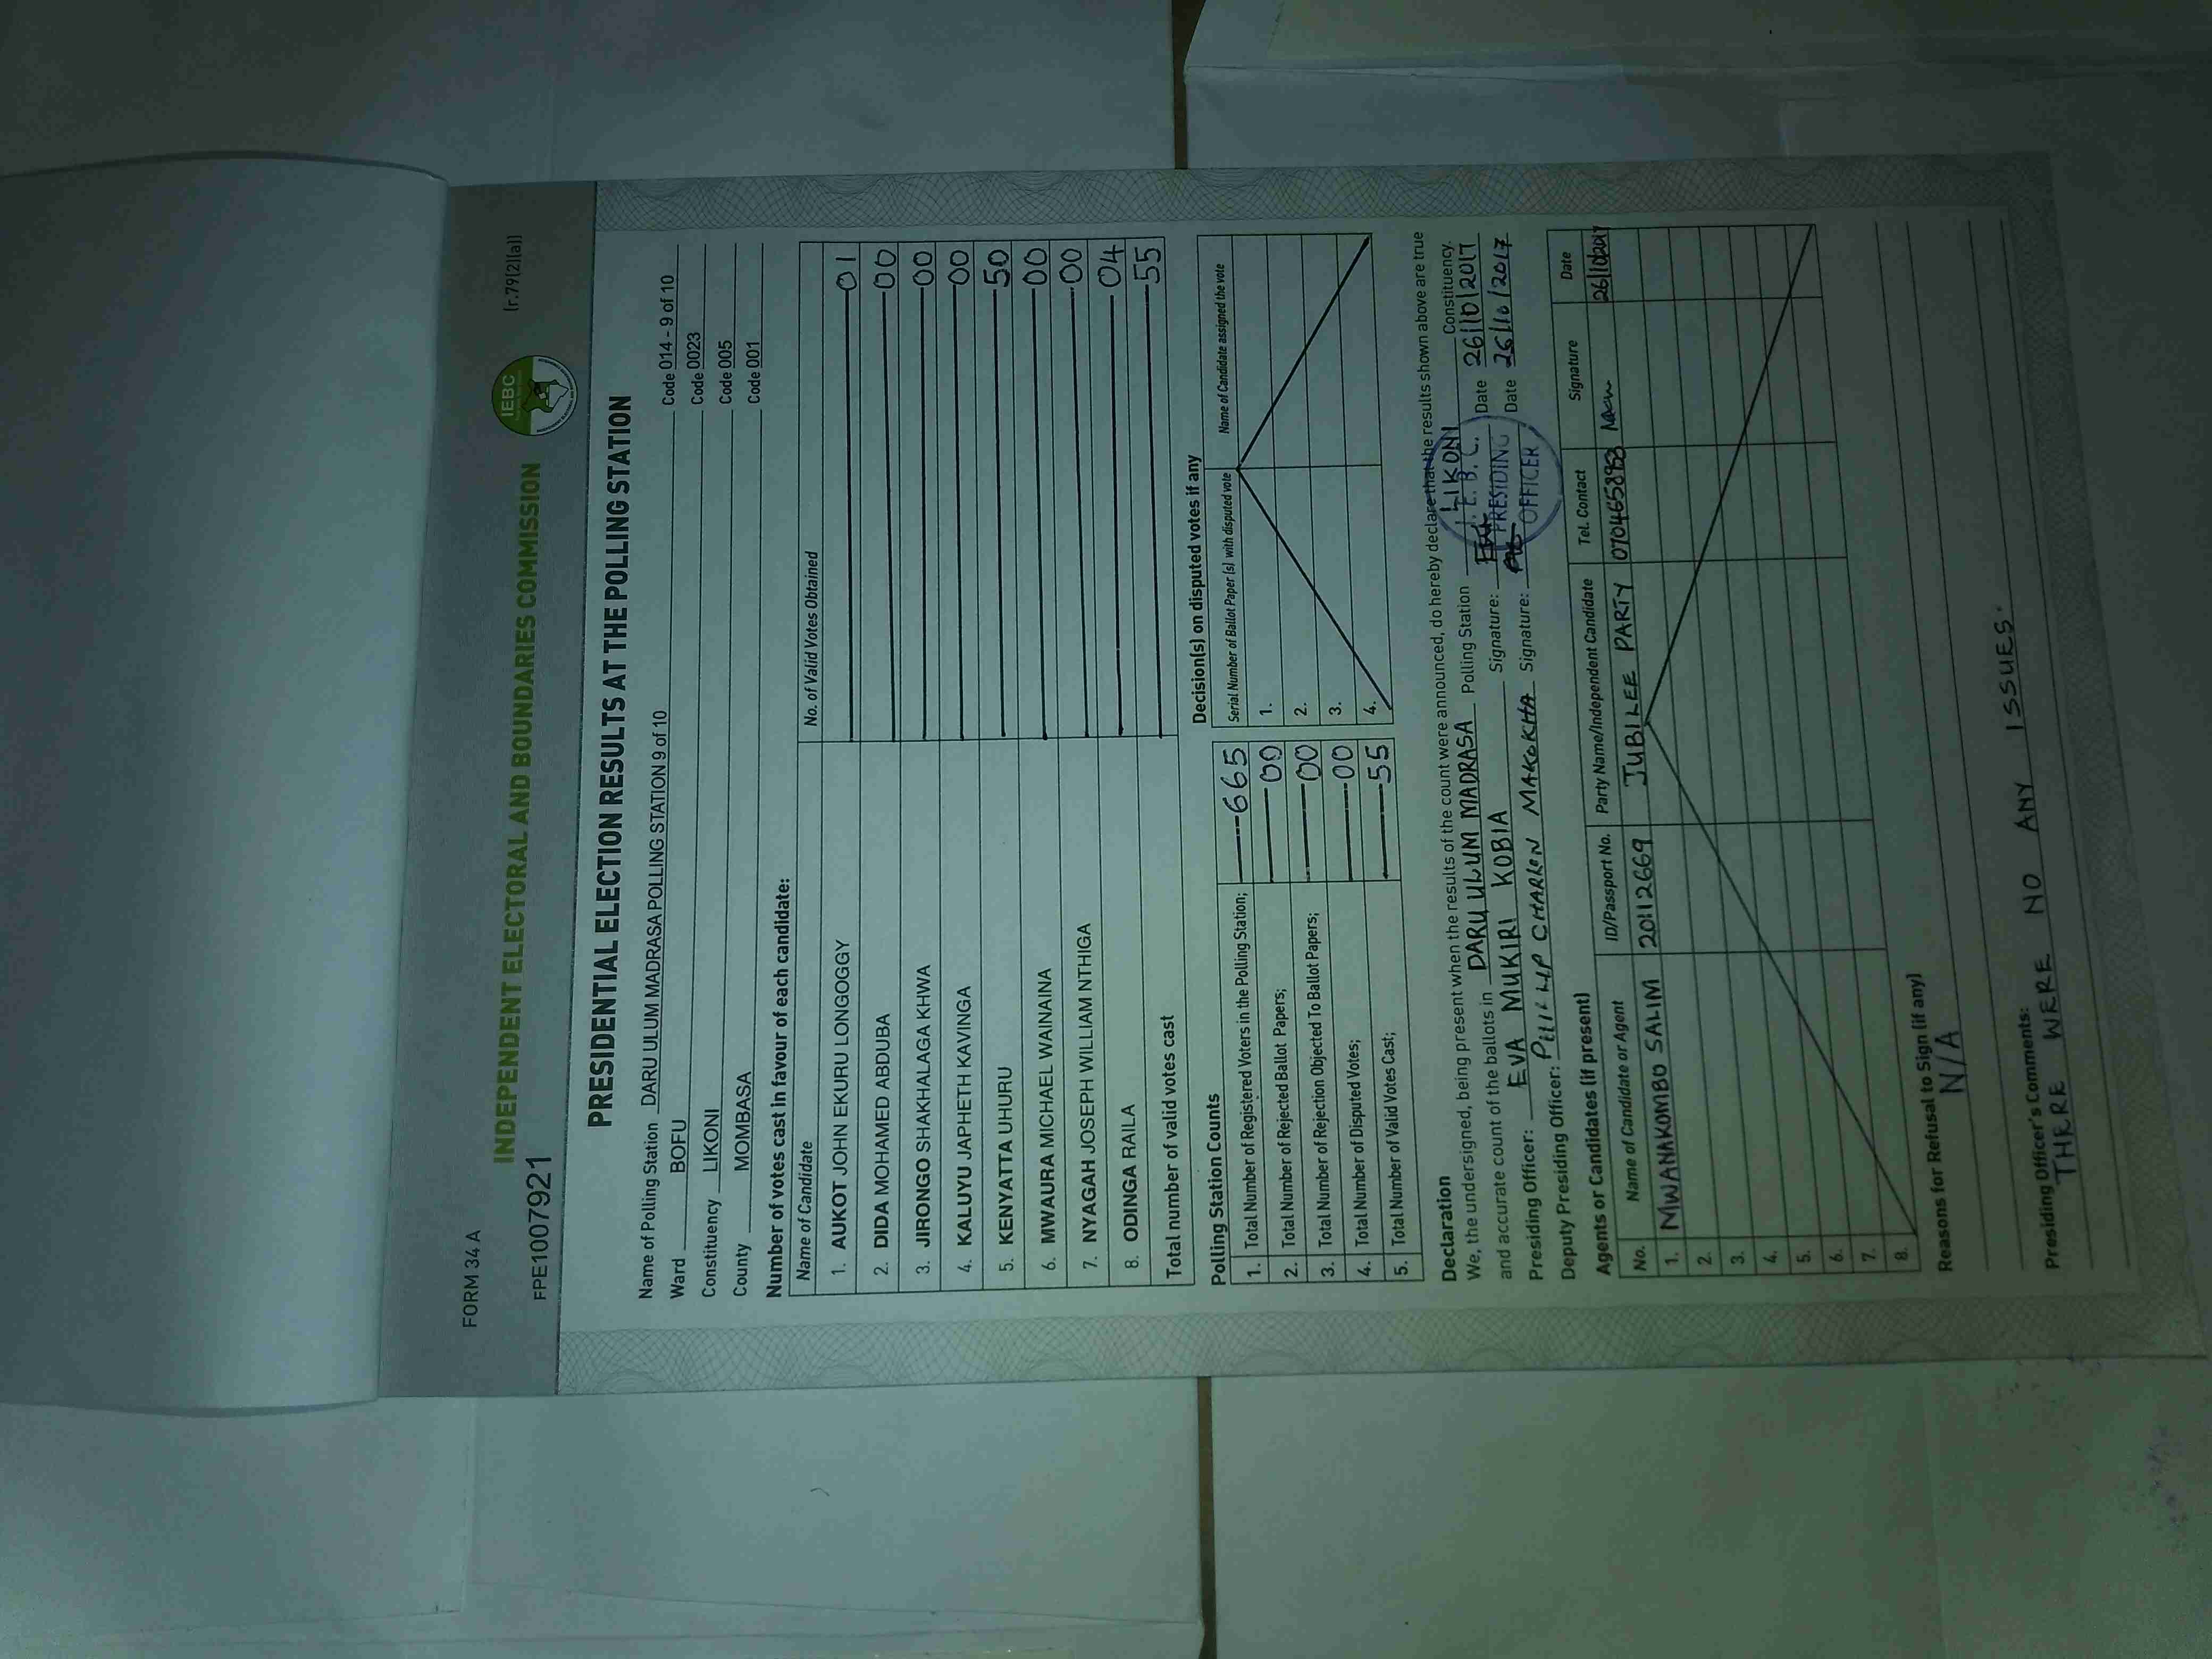 FORM 34 A
INDEPENDENT ELECTORAL AND BOUNDARIES COMMISSION
IEBC
(r.79(2)(a))
FPE1007921
PRESIDENTIAL ELECTION RESULTS AT THE POLLING STATION
Name of Polling Station DARU ULUM MADRASA POLLING STATION 9 of 10 Code 014 - 9 of 10
Ward BOFU Code 0023
Constituency LIKONI Code 005
County MOMBASA Code 001
Number of votes cast in favour of each candidate:
Name of Candidate No. of Valid Votes Obtained
1. AUKOT JOHN EKURU LONGOGGY 01
2. DIDA MOHAMED ABDUBA 00
3. JIRONGO SHAKHALAGA KHWA 00
4. KALUYU JAPHETH KAVINGA 00
5. KENYATTA UHURU 50
6. MWAURA MICHAEL WAINAINA 00
7. NYAGAH JOSEPH WILLIAM NTHIGA 00
8. ODINGA RAILA 04
Total number of valid votes cast 55
Polling Station Counts
1. Total Number of Registered Voters in the Polling Station; 665
2. Total Number of Rejected Ballot Papers; 00
3. Total Number of Rejection Objected To Ballot Papers; 00
4. Total Number of Disputed Votes; 00
5. Total Number of Valid Votes Cast; 55
Decision(s) on disputed votes if any
Serial Number of Ballot Paper (s) with disputed vote Name of Candidate assigned the vote
1.
2.
3.
4.
Declaration
We, the undersigned, being present when the results of the count were announced, do hereby declare that the results shown above are true
and accurate count of the ballots in DARU ULUM MADRASA Polling Station LIKONI Constituency.
Presiding Officer: EVA MUKIRI KOBIA Signature: Date 26/10/2017
Deputy Presiding Officer: PHILLIP CHARLEN MAKOKHA Signature: Date 26/10/2017
I. E. B. C.
PRESIDING
OFFICER
Agents or Candidates (if present)
No. Name of Candidate or Agent ID/Passport No. Party Name/Independent Candidate Tel. Contact Signature Date
1. MWANAKOMBO SALIM 20112669 JUBILEE PARTY 26/10/2017
2.
3.
4.
5.
6.
7.
8.
Reasons for Refusal to Sign (if any)
N/A
Presiding Officer's Comments:
THERE WERE NO ANY ISSUES.